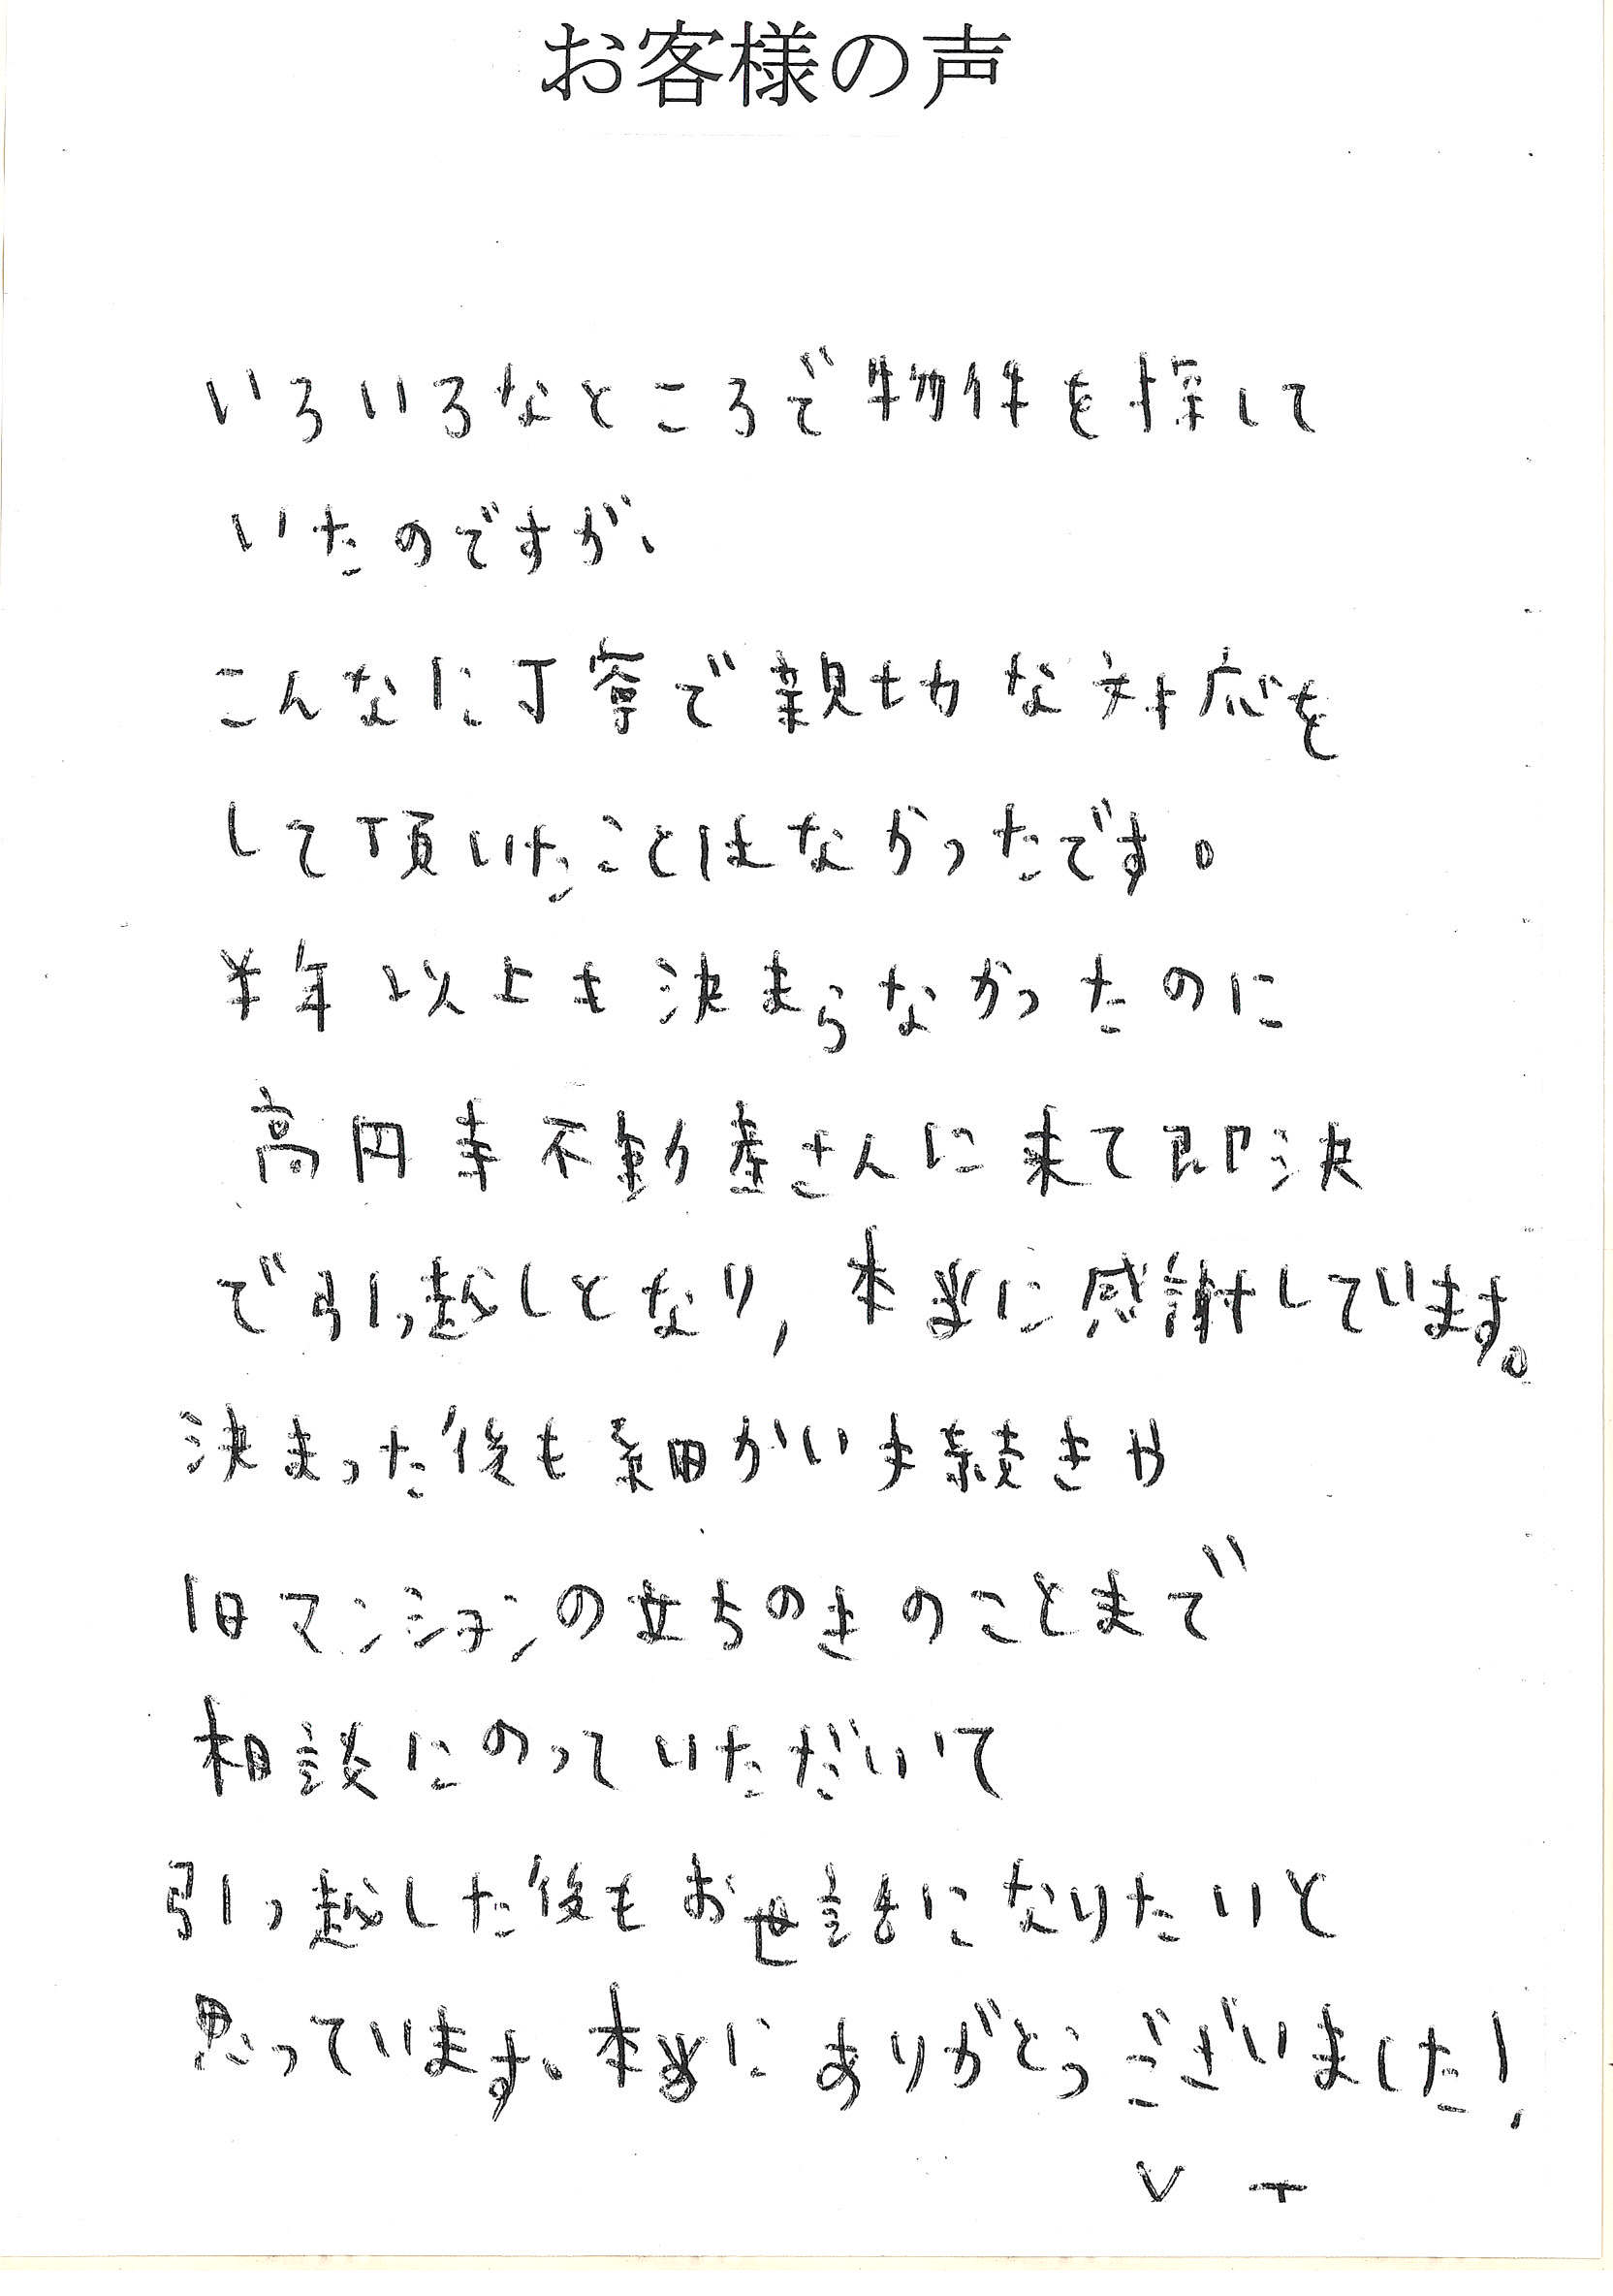 お客様の声
いろいろなところで物件を探して
いたのですが、
こんなに丁寧で親切な対応を
して頂いたことはなかったです。
半年以上も決まらなかったのに
高円寺不動産さんに来て即決
で引っ越しとなり, 本当に感謝しています。
決まった後も細かい手続きや
旧マンションの立ちのきのことまで
相談にのっていただいて
引っ越した後もお世話になりたいと
思っています。本当にありがとうございました!